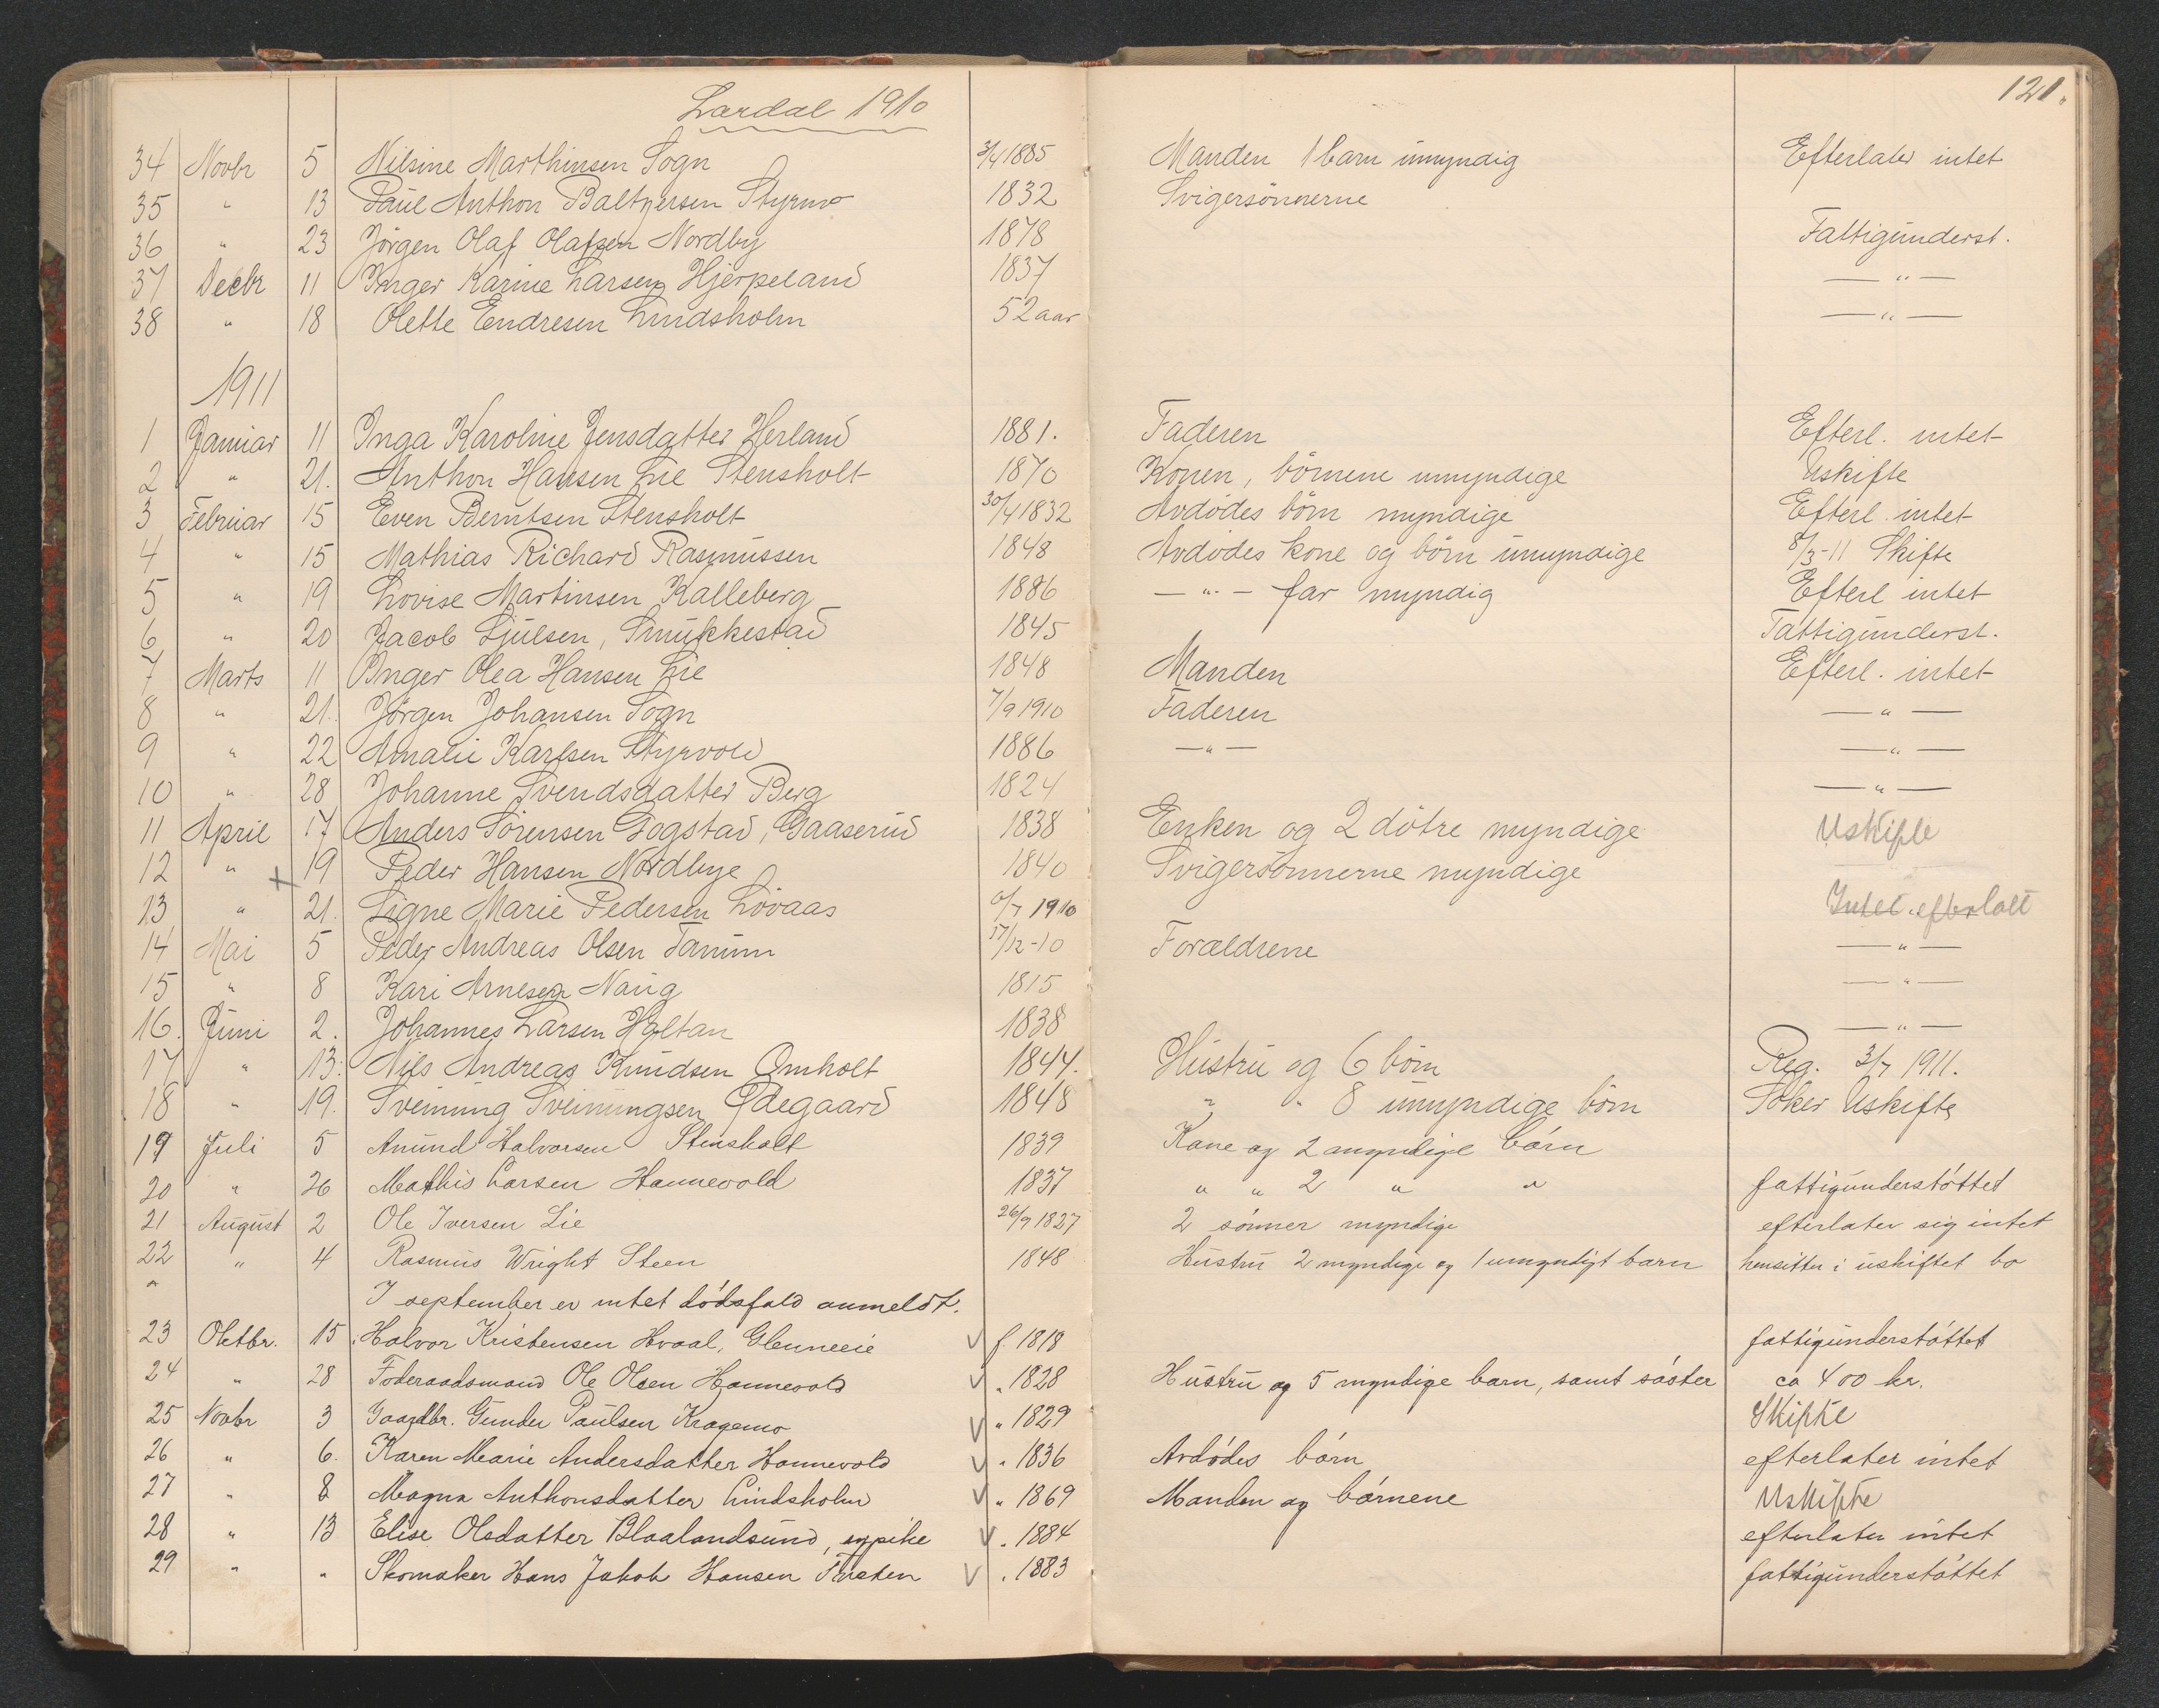 Lardal 1910
121.
34 Novbr 5 Nilsine Marthinsen Sogn 3/4 1885 Manden 1 barn umyndig Efterlater intet
35 " 13 Paul Anthon Baltzersen Styrmo 1832 Svigersönnerne
36 " 23 Jörgen Olaf Olafsen Nordby 1878 Fattigunderst.
37 Decbr 11 Inger Karine Larsen Hjerpeland 1837 — " —
38 " 18 Olette Endresen Lindsholm 52 aar — " —
1911
1 Januar 11 Inga Karoline Jensdatter Herland 1881. Faderen Efterl. intet
2 " 21. Anthon Hansen Lie Stensholt 1870 Konen, börnene umyndige Uskifte
3 Februar 15 Even Berntsen Stensholt 30/4 1832 Avdödes börn myndige Efterl. intet
4 " 15 Mathias Richard Rasmussen 1848 Avdödes kone og börn umyndige 8/3-11 Skifte
5 " 19 Lovise Martinsen Kalleberg 1886 — " — far myndig Efterl intet
6 " 20 Jacob Ljulsen, Smukkestad 1845 Fattigunderst.
7 Marts 11 Inger Olea Hansen Lie 1848 Manden Efterl. intet
8 " 21. Jörgen Johansen Sogn 7/9 1910 Faderen — " —
9 " 22 Amalie Karlsen Styrvold 1886 — " — — " —
10 " 28 Johanne Svendsdatter Berg 1824 — " —
11 April 17 Anders Sörensen Gogstad, Gaaserud 1838 Enken og 2 dötre myndige Uskifte
12 " + 19 Peder Hansen Nordbye 1840 Svigersönnerne myndige
13 " 21. Signe Marie Pedersen Lövaas 1910 Intet efterlatt
14 Mai 5 Peder Andreas Olsen Tanum 17/12-10 Forældrene — " —
15 " 8 Kari Arnesen Naug 1815 — " —
16. Juni 2. Johannes Larsen Holtan 1838 — " —
17 " 13. Nils Andreas Knudsen Omholt 1844. Hustru og 6 börn Reg. 3/7 1911.
18 " 19. Sveinung Sveinungsen Ødegaard 1848 " " 8 umyndige börn Söker Uskifte
19 Juli 5 Anund Halvorsen Stensholt 1839 Kone og 2 umyndige börn
20 " 26 Mathis Larsen Hannevold 1837 " " 2 " " fattigunderstöttet
21 August 2 Ole Iversen Lie 26/9 1827 2 sönner myndige efterlater sig intet
22 " 4 Rasmus Wright Steen 1848 Hustru 2 myndige og 1 umyndigt barn hensitter i uskiftet bo
" I september er intet dödsfald anmeldt.
23 Oktbr. 15 Halvor Kristensen Hvaal, Glenneeie f. 1818 fattigunderstöttet
24 " 28 Föderaadsmand Ole Olsen Hannevold " 1828 Hustru og 5 myndige barn, samt söster ca 400 kr.
25 Novbr 3 Gaardbr. Gunder Paulsen Kragemo " 1829 Skifte
26 " 6. Karen Marie Andersdatter Hannevold " 1836 Avdödes börn efterlater intet
27 " 8 Magna Anthonsdatter Lindsholm " 1869 Manden og börnene Uskifte
28 " 13 Elise Olsdatter Blaalandsund, " 1884 efterlater intet
29 " " Skomaker Hans Jakob Hansen " 1883 fattigunderstöttet